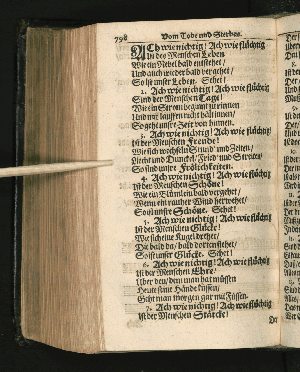 798 Vom Tode und Sterben.
ACh wie nichtig! Ach wie flüchtig
Ist des Menschen Leben
Wie ein Nebel bald entstehet/
Und auch wieder bald vergehet/
So ist unser Leben. Sehet!
2. Ach wie nichtig! Ach wie flüchtig
Sind der Menschen Tage!
Wie ein Strom beginnt zu rinnen
Und mit lauffen nicht hält innen/
So geht unsre Zeit von hinnen.
3. Ach wie nichtig! Ach wie flüchtig
Ist der Menschen Freude!
Wie sich wechseln Stund und Zeiten/
Liecht und Dunckel/ Fried und Streiten/
So sind unsre Frölichkeiten.
4. Ach wie nichtig! Ach wie flüchtig
Ist der Menschen Schöne!
Wie ein Blümlein bald vergehet/
Wenn ein rauher Wind herwehet/
So ist unsre Schöne. Sehet!
5. Ach wie nichtig! Ach wie flüchtig
Ist der Menschen Glücke!
Wie sich eine Kugel drehet/
Die bald da/ bald dort enstehet/
So ist unser Glücke. Sehet!
6. Ach wie nichtig! Ach wie flüchtig
Ist der Menschen Ehre!
Über den/ dem man hat müssen
Heute seine Hände küssen/
Geht man morgen gar mit Füssen.
7. Ach wie nichtig! Ach wie flüchtig
Ist der Menschen Stärcke!
Der